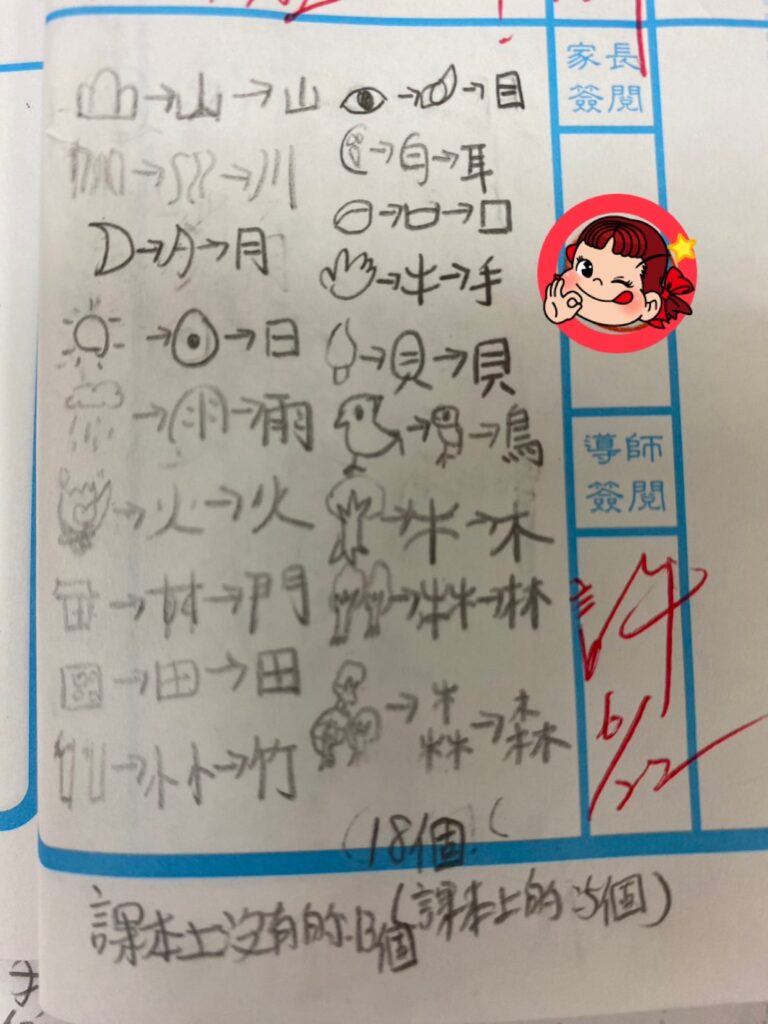 →山→山
→川
→月→月
→日
→雨
→火→火
→門
→田→田
→竹
→目
→耳
→口
→手
→貝→貝
→鳥
→木
→林
→森
(18個.(
課本上沒有的13個(課本上的5個)
家長
簽閱
導師
簽閱
許
6/22